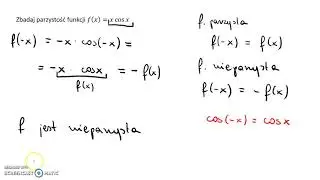 Zbadaj parzystość funkcji f(x) = x cos x
f(-x) = -x · cos(-x) =
= -x · cosx = - f(x)
f(x)
f jest nieparzysta
f. parzysta
f(-x) = f(x)
f. nieparzysta
f(-x) = - f(x)
cos(-x) = cosx
SCREENCAST-O-MATIC